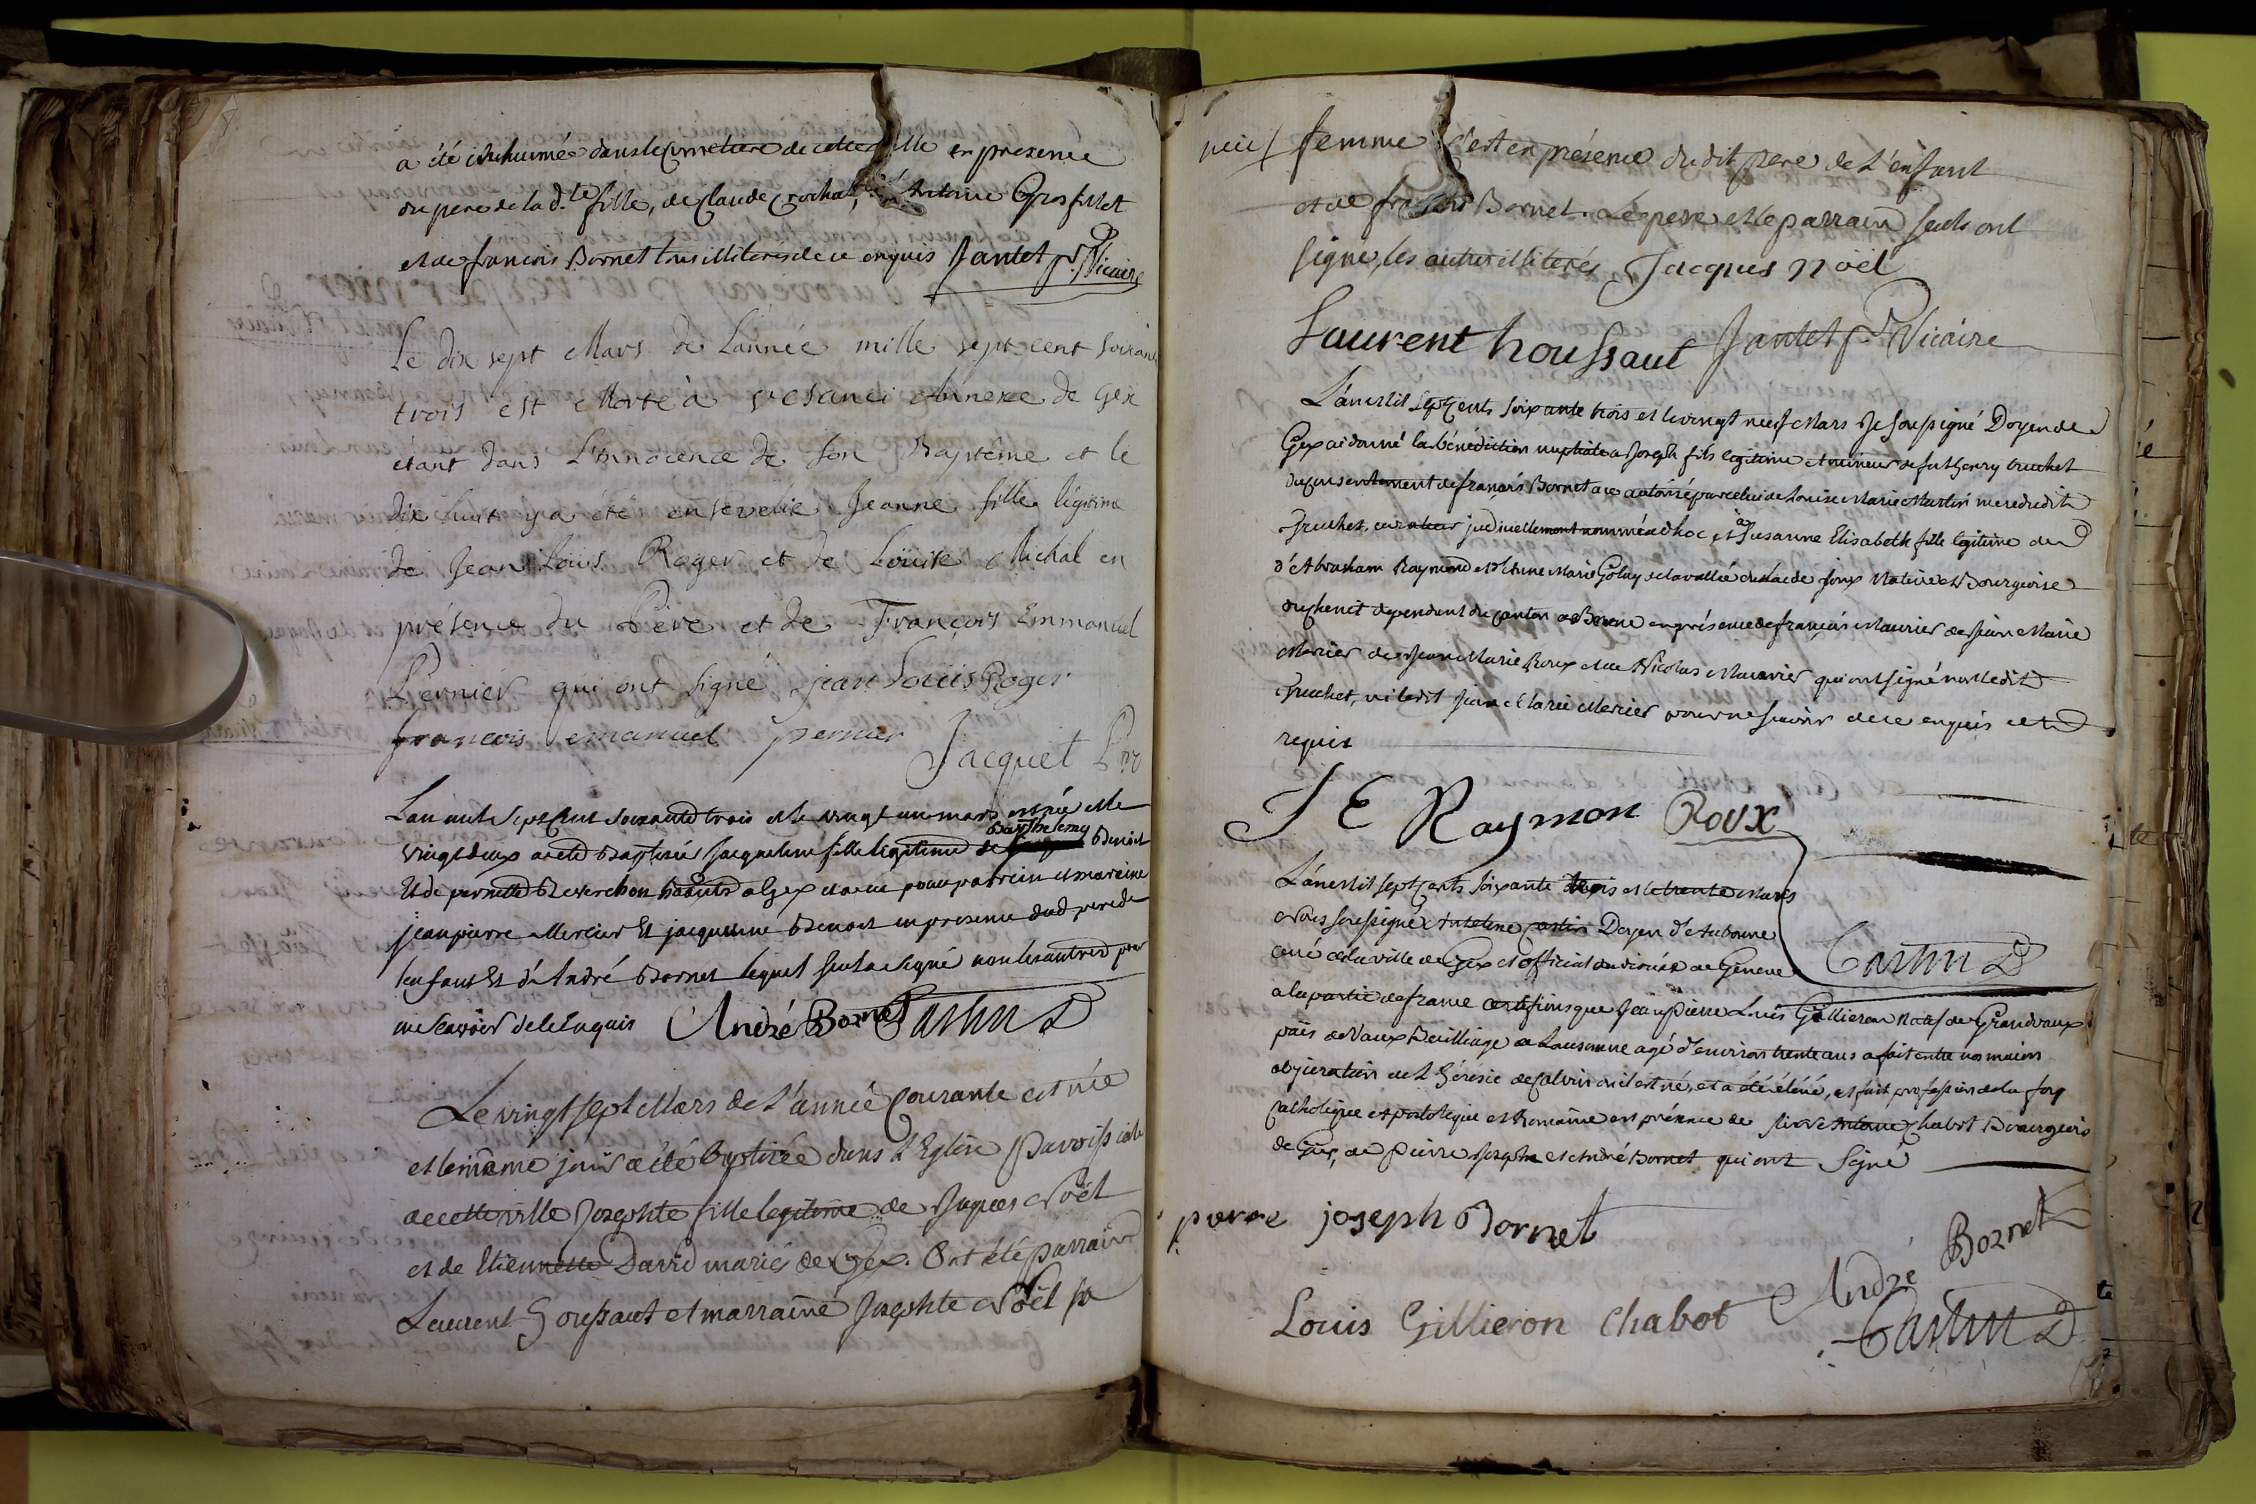 a été inhumée dans le Cimetiere de cette ville en presence
du pere de la d.te fille, de Claude Crochat, d'Antoine Grosfillet
et de francois Bornet tous illiterés de ce enquis Jantet p. Vicaire
Le dix sept Mars de L'année mille sept cent soixante
trois est Morte à Annexe de Gex
étant dans L'innocence de son Baptême et le
dix huit y a été ensevelie Jeanne fille légitime
de Jean Louis Roger et de Loüise Michal en
présence du Père et de François Emmanuel
Pernier qui ont signé jean Louis Roger
francois emanuel pernier Jacquet
Lan mil Sept Cent soixante trois et le vingt un mars est née et le
Barthelemy
vingt deux a été Baptisée Jacqueline fille legitime de Benoit
Et de pernette habitants a Gex et a eu pour parrein et mareine
jean pierre Mercier Et jacqueline Benoit en presence dud pere de
lenfant Et d'André Bornet lequel seul a signé non les autres pour
ne scavoir de ce Enquis André Bornet Castin D
Le vingt sept Mars de L'année Courante est née
et le même jour a été Baptisée dans L'Eglise Paroissiale
de cette ville Josephte fille legitime de Jaques Noël
et de Etiennette David mariés de Gex. Ont été parrain
Laurent houssaut et marraine Josephte Noël sa
niéce femme c'est en présence du dit pere de L'enfant
et de francois Bornet. Le pere et le parrain seuls ont
signé, les autres illiterés Jacques Noël
Laurent houssaut Jantet p. Vicaire
L'an Mil Sept Cents soixante trois et le vingt neuf Mars Je soussigné Doyen de
Gex ai donné la bénédiction nuptiale a Joseph fils legitime et mineur de fut Henry truchet
du consentement de françois Bornet a ce autorisé par celui de Louise Marie Martin mere du dit
Truchet, curateur judiciellement nommé ad hoc, et à Susanne Elisabeth fille legitime de
d'Abraham Raymond et d'Anne Marie Golay de la vallée du Lac de Joux Native et Bourgeoise
du chenit dependant du canton de Berne en présence de françois Maurier de Jean Marie
Mercier de Jean Marie Roux et de Nicolas Maurier qui ont signé non ledit
Truchet, ni ledit Jean Marie Mercier pour ne scavoir de ce enquis et
requis
S E Raymon Roux
L'an Mil sept Cents soixante trois et le trente Mars
Nous soussigné Anteleme Castin Doyen d'Aubonne
curé de la ville de Gex et official du diocése de Geneve Castin D
a la partie de france certifions que Jean Pierre Louis Gillieron Natif de Grandvaux
païs de Vaux Bailliage de Lausanne agé d'environ trente ans a fait entre nos mains
abjuration de L'hérésie de Calvin où il est né, et a été élévé, et fait profession de la foy
Catholique apostolique et Romaine en présence de Antoine Chabot Bourgeois
de Gex, de Pierre Joseph et André Bornet qui ont Signé
pierre joseph Bornet
André Bornet
Louis Gillieron Chabot Castin D